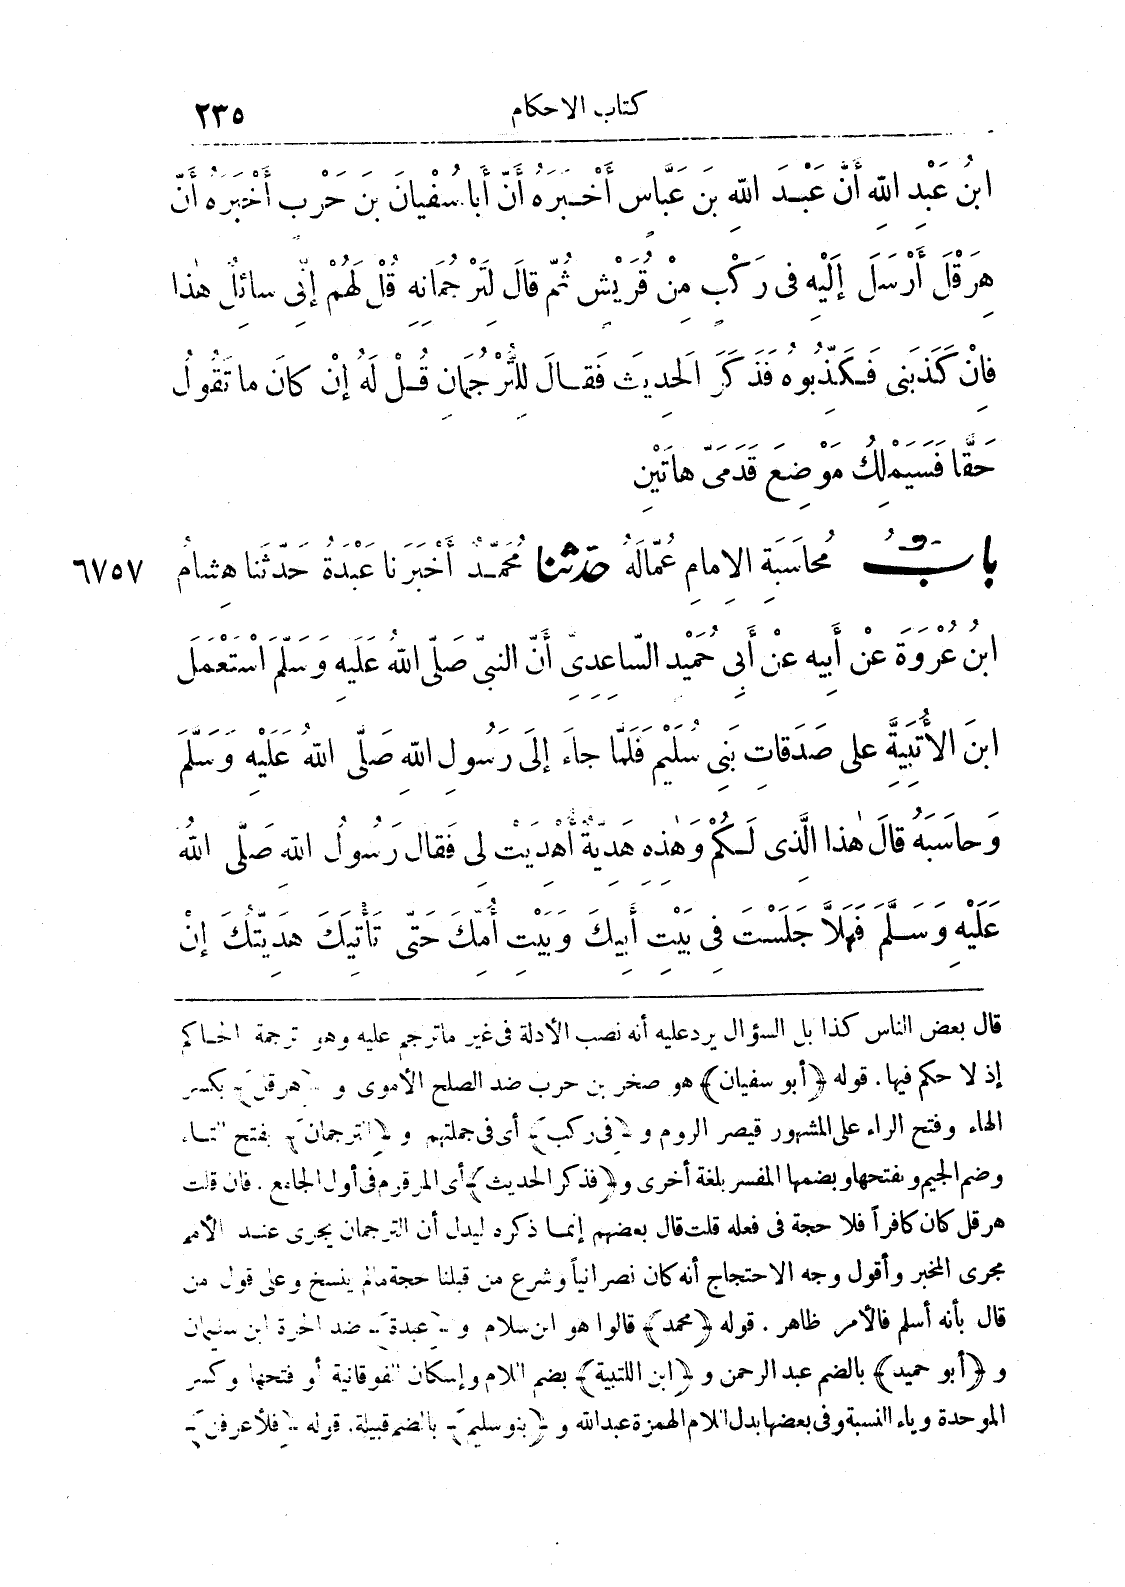 كتاب الاحكام ٢٣٥
ابنُ عَبْدِ اللهِ أَنَّ عَبْدَ اللهِ بنَ عَبَّاسٍ أَخْبَرَهُ أَنَّ أَبا سُفْيانَ بنَ حَرْبٍ أَخْبَرَهُ أَنَّ
هِرَقْلَ أَرْسَلَ إِلَيْهِ فى رَكْبٍ مِنْ قُرَيْشٍ ثُمَّ قالَ لِتَرْجُمانِهِ قُلْ لَهُمْ إِنِّى سائِلٌ هٰذا
فانْ كَذَبَنِى فَكَذِّبُوهُ فَذَكَرَ الحَدِيثَ فَقالَ لِلتُّرْجُمانِ قُلْ لَهُ إنْ كانَ ما تَقُولُ
حَقًّا فَسَيَمْلِكُ مَوْضِعَ قَدَمَىَّ هاتَيْنِ
بابُ مُحاسَبَةِ الإِمامِ عُمّالَهُ حدّثنا مُحَمَّدٌ أَخْبَرَنا عَبْدَةُ حَدَّثَنا هِشامُ ٦٧٥٧
ابنُ عُرْوَةَ عَنْ أَبِيهِ عَنْ أَبِى حُمَيْدٍ السّاعِدِىِّ أَنَّ النبىَّ صَلَّى اللهُ عَلَيهِ وَسَلَّمَ اسْتَعْمَلَ
ابنَ الأُتَبِيَّةِ على صَدَقاتِ بَنِى سُلَيْمٍ فَلَمَّا جاءَ إلَى رَسُولِ اللهِ صَلَّى اللهُ عَلَيْهِ وَسَلَّمَ
وَحاسَبَهُ قالَ هٰذا الَّذِى لَكُمْ وَهٰذِهِ هَدِيَّةٌ أُهْدِيَتْ لِى فَقال رَسُولُ اللهِ صَلَّى اللهُ
عَلَيْهِ وَسَلَّمَ فَهَلاَّ جَلَسْتَ فِى بَيْتِ أَبِيكَ وَبَيْتِ أُمِّكَ حَتَّى تَأْتِيَكَ هَدِيَّتُكَ إنْ
قال بعض الناس كذا بل السؤال يرد عليه أنه نصب الأدلة فى غير ما ترجم عليه وهو ترجمة الحاكم
إذ لا حكم فيها . قوله ﴿أبو سفيان﴾ هو صخر بن حرب ضد الصلح الأموى و ﴿هرقل﴾ بكسر
الهاء وفتح الراء على المشهور قيصر الروم و ﴿فى ركب﴾ أى فى جملتهم و ﴿الترجمان﴾ بفتح التاء
وضم الجيم وبفتحها وبضمها المفسر بلغة أخرى و ﴿فذكر الحديث﴾ أى المرقوم فى أول الجامع . فان قلت
هرقل كان كافراً فلا حجة فى فعله قلت قال بعضهم إنما ذكره ليدل أن الترجمان يجرى عند الأمم
مجرى المخبر وأقول وجه الاحتجاج أنه كان نصرانياً وشرع من قبلنا حجة مالم ينسخ وعلى قول من
قال بأنه أسلم فالأمر ظاهر . قوله ﴿محمد﴾ قالوا هو ابن سلام و ﴿عبدة﴾ ضد الحرة ابن سليمان
و ﴿أبو حميد﴾ بالضم عبد الرحمن و ﴿ابن اللتبية﴾ بضم اللام وإسكان الفوقانية أو فتحها وكسر
الموحدة وياء النسبة وفى بعضها بدل اللام الهمزة عبدالله و ﴿بنو سليم﴾ بالضم قبيلة. قوله ﴿فلأعرفن﴾